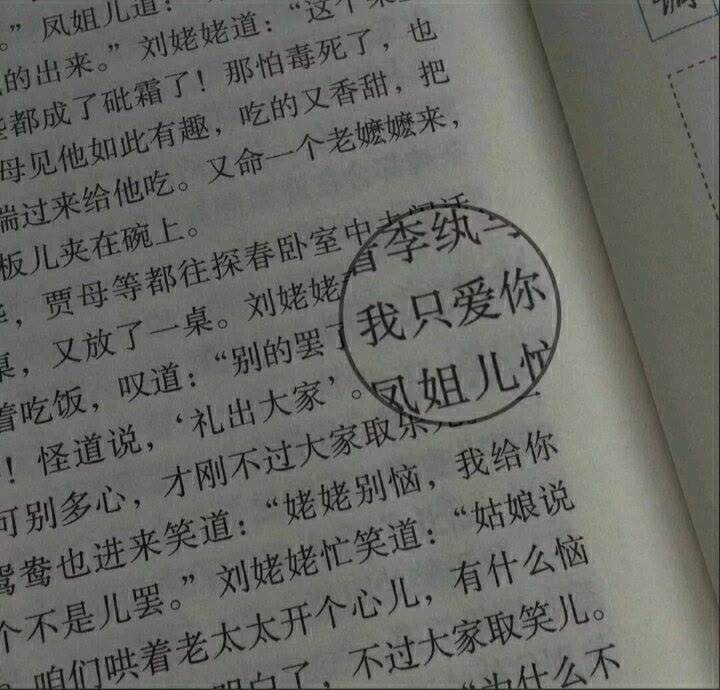 。”凤姐儿道：“这个菜里
的出来。”刘姥姥道：
都成了砒霜了！那怕毒死了，也
母见他如此有趣，吃的又香甜，把
端过来给他吃。又命一个老嬷嬷来，
板儿夹在碗上。
，贾母等都往探春卧室中去闲话
桌，又放了一桌。刘姥姥
着李纨与
我只爱你
凤姐儿忙
着吃饭，叹道：“别的罢了
！怪道说，‘礼出大家’。
可别多心，才刚不过大家取乐儿。
鸳鸯也进来笑道：“姥姥别恼，我给你
个不是儿罢。”刘姥姥忙笑道：“姑娘说
咱们哄着老太太开个心儿，有什么恼
明白了，不过大家取笑儿。
“为什么不